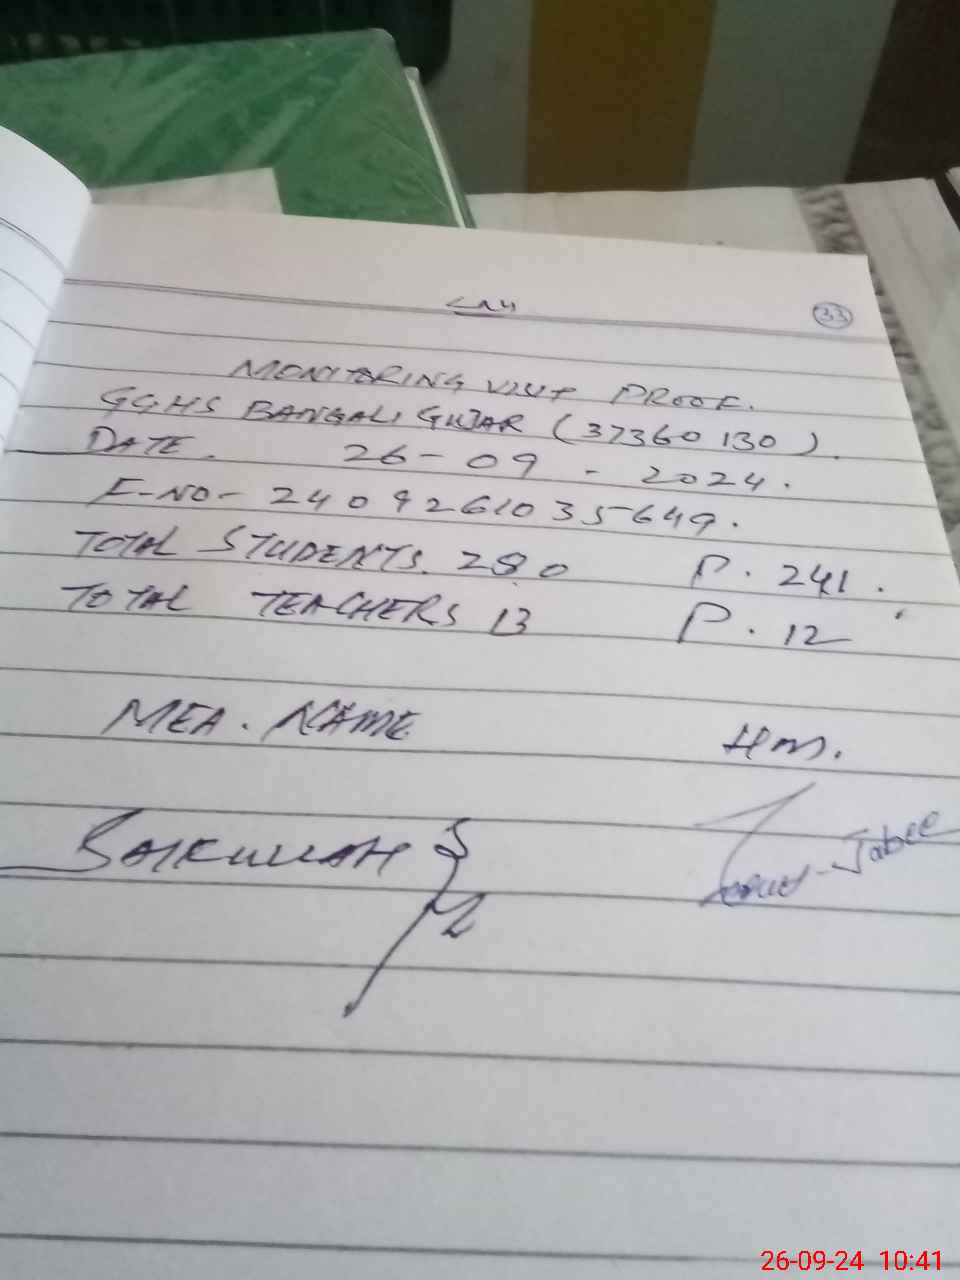 33
MONITORING VISIT PROOF.
GGHS BANGALI GUJAR (37360130).
DATE. 26-09-2024.
F-NO- 2409261035649.
TOTAL STUDENTS. 280 P. 241.
TOTAL TEACHERS 13 P. 12
MEA. NAME. HM.
26-09-24 10:41